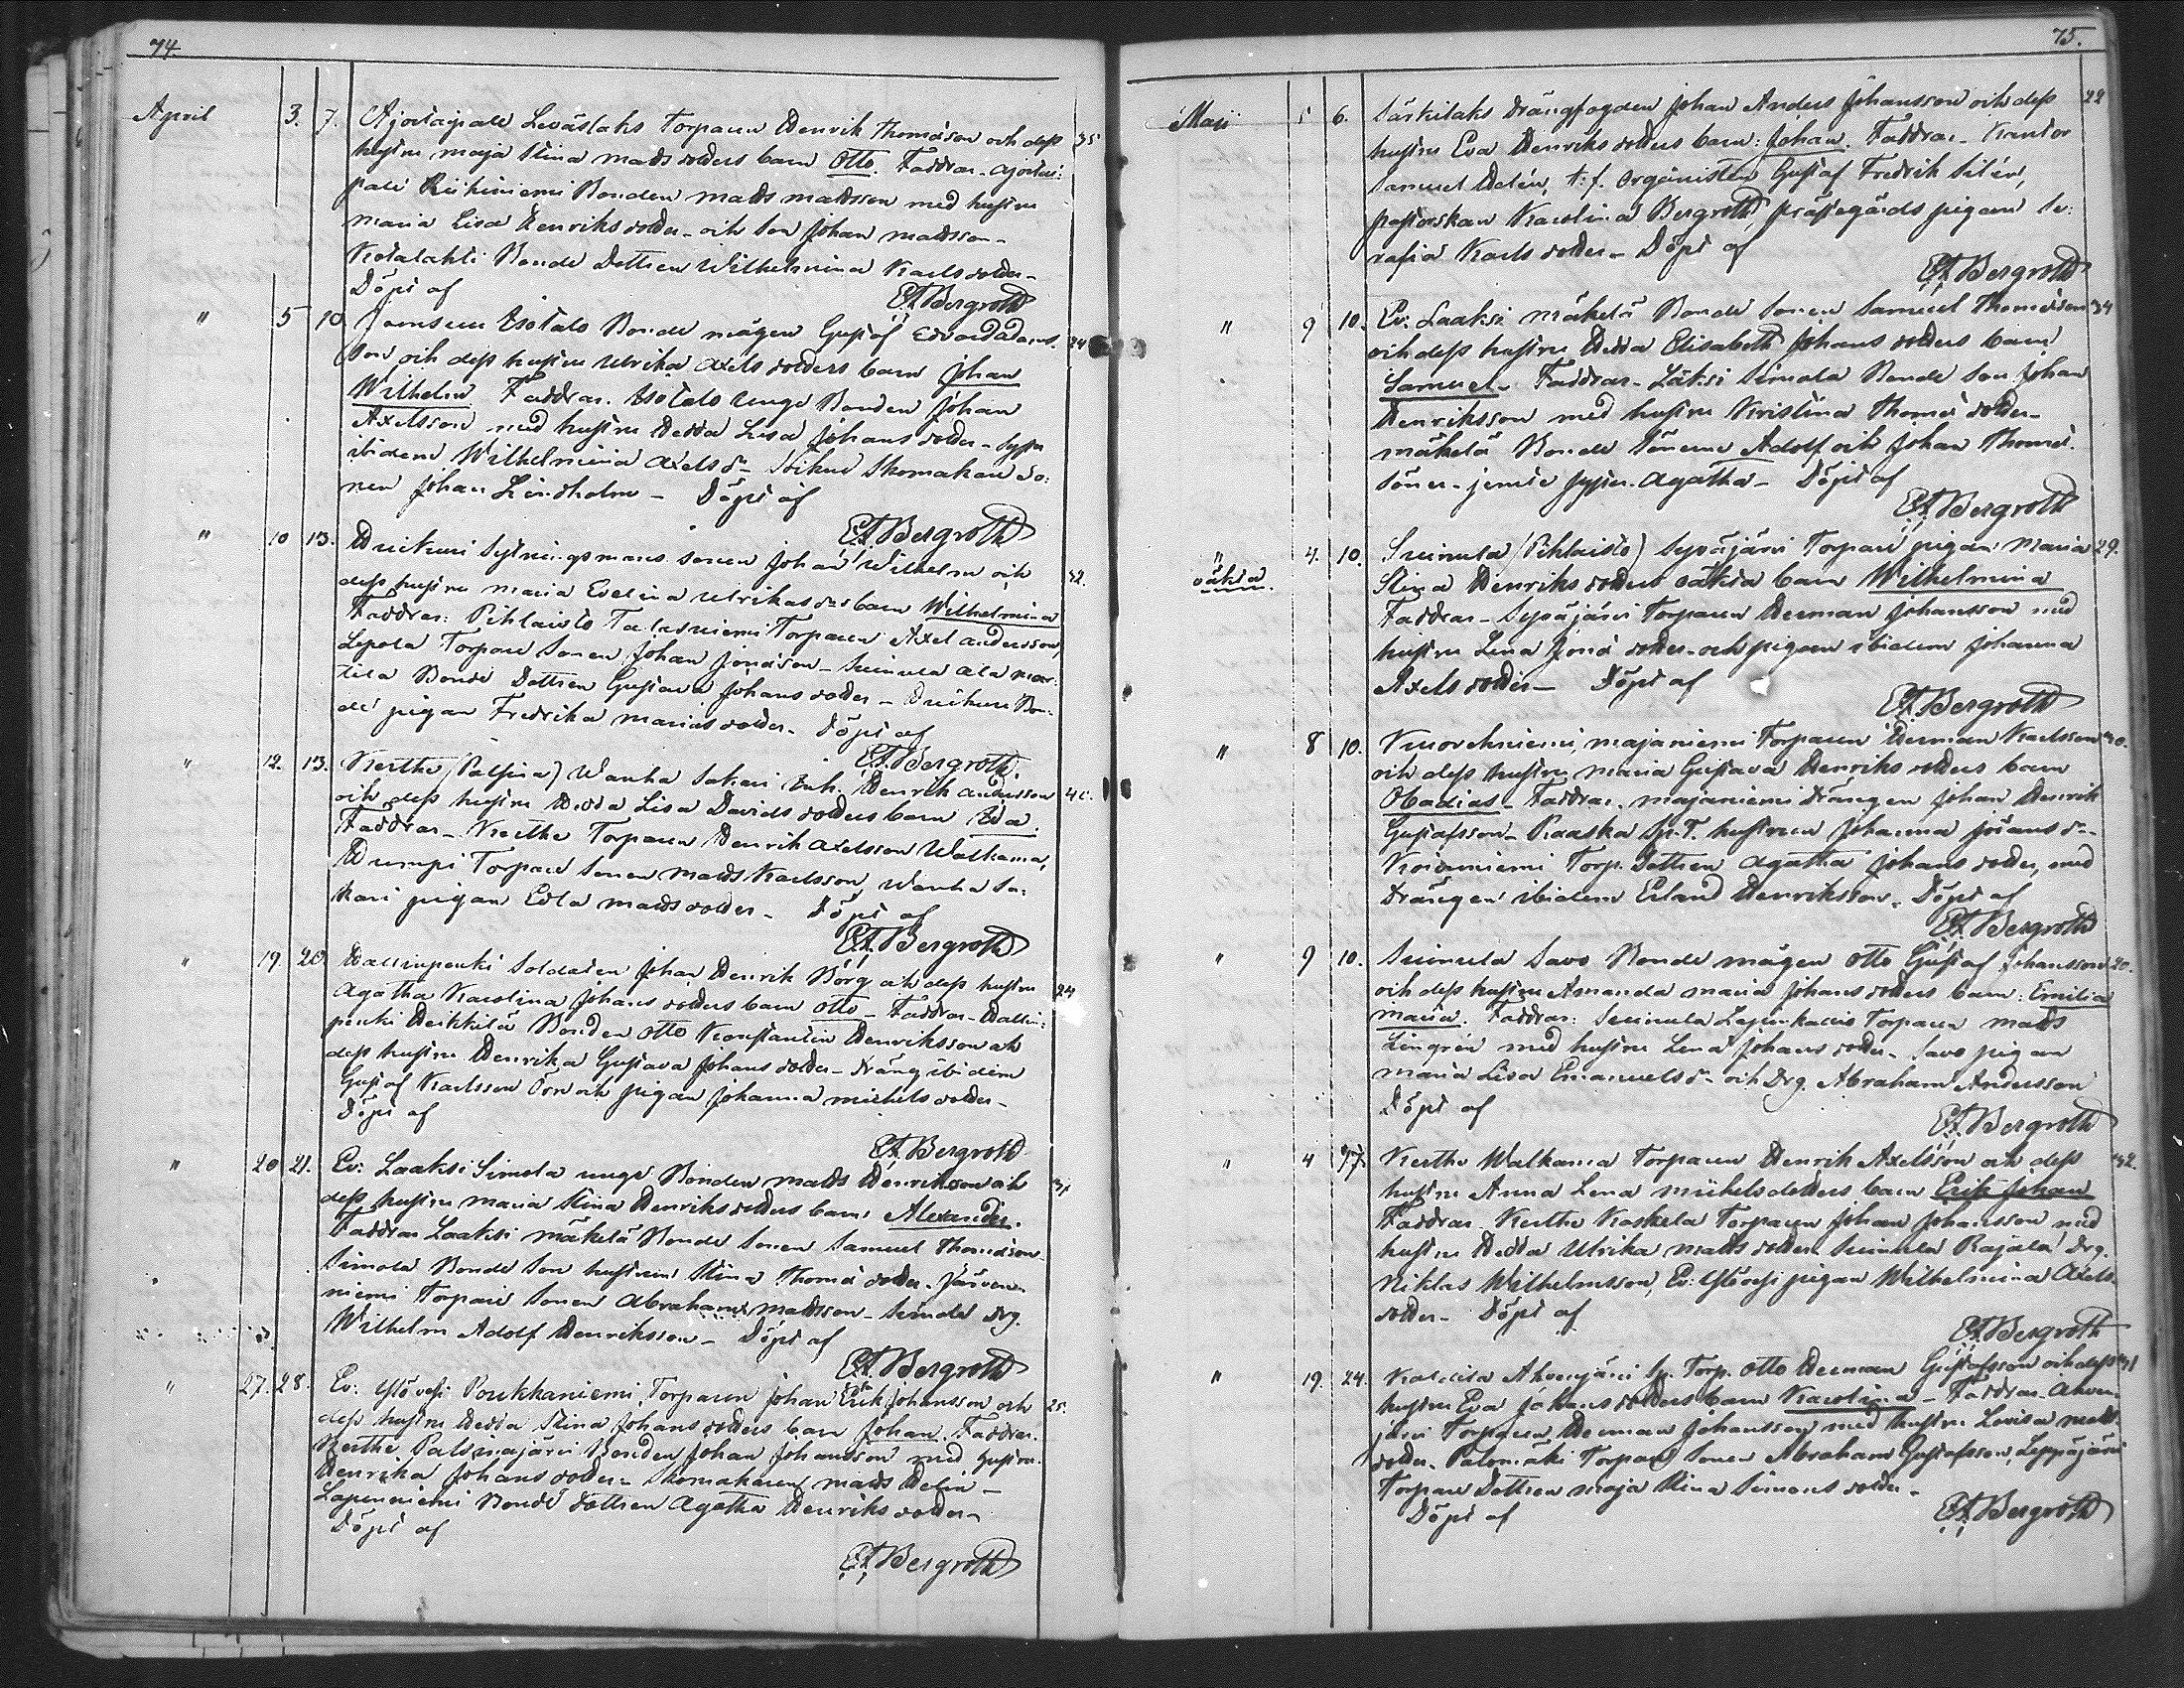 74.
April 3. 7. Ajostaipale Leväslaks Torparen Henrik Thomasson och dess 35
hustru Maja Stina Mattsdotters barn Otto. Faddrar - Ajostai-
pale Riihiniemi Bonden Matts Mattsson med hustru
Maria Lisa Henriksdotter - och son Johan Mattsson -
Kotalahti Bonde Dottren Wilhelmina Karlsdotter -
Döpt af EA Bergroth
" 5 10 Isotalo Bonde mågen Gustaf Edvard Adams- 24
son och dess hustru Ulrika Axelsdotters barn Johan
Wilhelm. Faddrar. Isotalo unge Bonden Johan
Axelsson med hustru Hedda Lisa Johansdotter -
ibidem Wilhelmina Axels dr Skomakare so-
nen Johan Lindholm - Döpt af
EA Bergroth
" 10 13. Sytningsmans sonen Johan Wilhelm och 32.
dess hustru Maria Evelina Ulrikas drs barn Wilhelmina
Faddrar: Pihlaisto Torparen Axel Andersson,
Lepola Torpare Sonen Johan Jonasson - Suinula Ala
Bonde Dottren Gustava Johansdotter - Bon-
de pigan Fredrika Mariasdotter. Döpt af
EA Bergroth
" 12. 13. Kertte (Palsina) Wanha Sakari Inh. Henrik Andersson 40.
och dess hustru Hedda Lisa Davidsdotters barn Ida.
Faddrar - Kertte Torparen Henrik Axelsson Walkama,
Torpare Sonen Matts Karlsson, Wanha Sa-
kari pigan Edla Mattsdotter - Döpt af
EA Bergroth
" 19. 20 Hallinpenki Soldaten Johan Henrik Borg och dess hustru 24
Agatha Karolina Johansdotters barn Otto - Faddrar - Hallin-
penki Heikkilä Bonden Otto Konstantin Henriksson och
dess hustru Henrika Gustava Johansdotter - Dräng ibidem
Gustaf Karlsson Örn och pigan Johanna Michelsdotter -
Döpt af
EA Bergroth
" 20 21. Ev: Laaksi Simola unge Bonden Matts Henriksson och
dess hustru Maria Stina Henriksdotters barn Alexander.
Faddrar Laaksi Mäkelä Bonde Sonen Samuel Thomasson
Simola Bonde Son hustrun Stina Thomasdotter. Järven-
niemi Torpare Sonen Abraham Mattsson - Simola drg.
Wilhelm Adolf Henriksson - Döpt af
EA Bergroth
" 27. 28. Ev: Ylövesi Poukkaniemi Torparen Johan Erik Johansson och 25.
dess hustru Hedda Stina Johansdotters barn Johan. Faddrar.
Kertte Palsinajärvi Bonden Johan Johansson med hustru
Henrika Johansdotter - Skomakaren Matts Helin -
Lapinniemi Bonde Dottren Agatha Henriksdotter -
Döpt af
EA Bergroth
75.
Maji 5 6. Särkilaks Drängfogden Johan Anders Johansson och dess 22
hustru Eva Henriksdotters barn: Johan. Faddrar - Kantor
Samuel Helén, t.f. Organisten Gustaf Fredrik Silén,
pastorskan Karolina Bergroth, prästegårds pigan Se-
rafia Karlsdotter - Döpt af
EA Bergroth
" 9 10. Ev: Laaksi Mäkelä Bonde Sonen Samuel Thomasson 34
och dess hustru Hedda Elisabeth Johansdotters barn
Samuel - Faddrar - Läksi Simola Bonde Son Johan
Henriksson med hustru Kristina Thomasdotter -
Mäkelä Bonde Sönerne Adolf och Johan Thomas-
söner - jemte syster Agatha - Döpt af
EA Bergroth
" oäkta. 4. 10. Suinula (Pihlaisto) Syväjärvi Torpare pigan Maria 29.
Stina Henriksdotters oäkta barn Wilhelmina
Faddrar - Syväjärvi Torparen Herman Johansson med
hustru Lena Jonasdotter - och pigan ibidem Johanna
Axelsdotter - Döpt af
EA Bergroth
" 8 10. Kuorehniemi, Majaniemi Torparen Herman Karlsson
och dess hustru Maria Gustava Henriksdotters barn
Obadias - Faddrar. Majaniemi Drängen Johan Henrik
Gustafsson - Raaska Sp.T. hustrun Johanna Johans dr -
Koivuniemi Torp. Dottren Agatha Johansdotter, med
Drängen ibidem Erland Henriksson. Döpt af
EA Bergroth
" 9 10. Suinula Savo Bonde mågen Otto Gustaf Johansson 20.
och dess hustru Amanda Maria Johansdotters barn: Emilia
Maria. Faddrar: Suinula Torparen Matts
Lingrén med hustru Lena Johansdotter - Savo pigan
Maria Lisa Emanuels dr och Drg. Abraham Andersson
Döpt af
EA Bergroth
" 4 17. Kertte Walkama Torparen Henrik Axelsson och dess 32.
hustru Anna Lena Michelsdotters barn Erik Johan
Faddrar. Kertte Koskela Torparen Johan Johansson med
hustru Hedda Ulrika Mattsdotter. Suinula Rajala Drg.
Niklas Wilhelmsson, Ev: Ylövesi pigan Wilhelmina Axels-
dotter - Döpt af
EA Bergroth
" 19. 24. Ahvenjärvi Sp. Torp. Otto Herman Gustafsson och dess
hustru Eva Johansdotters barn Karolina - Faddrar. Ahven-
järvi Torparen Herman Johansson med hustru Lovisa Matts-
dotter. Palomäki Torpare Sonen Abraham Gustafsson, Leppäjärvi
Torpare Dottren Maja Stina Simonsdotter -
Döpt af EA Bergroth